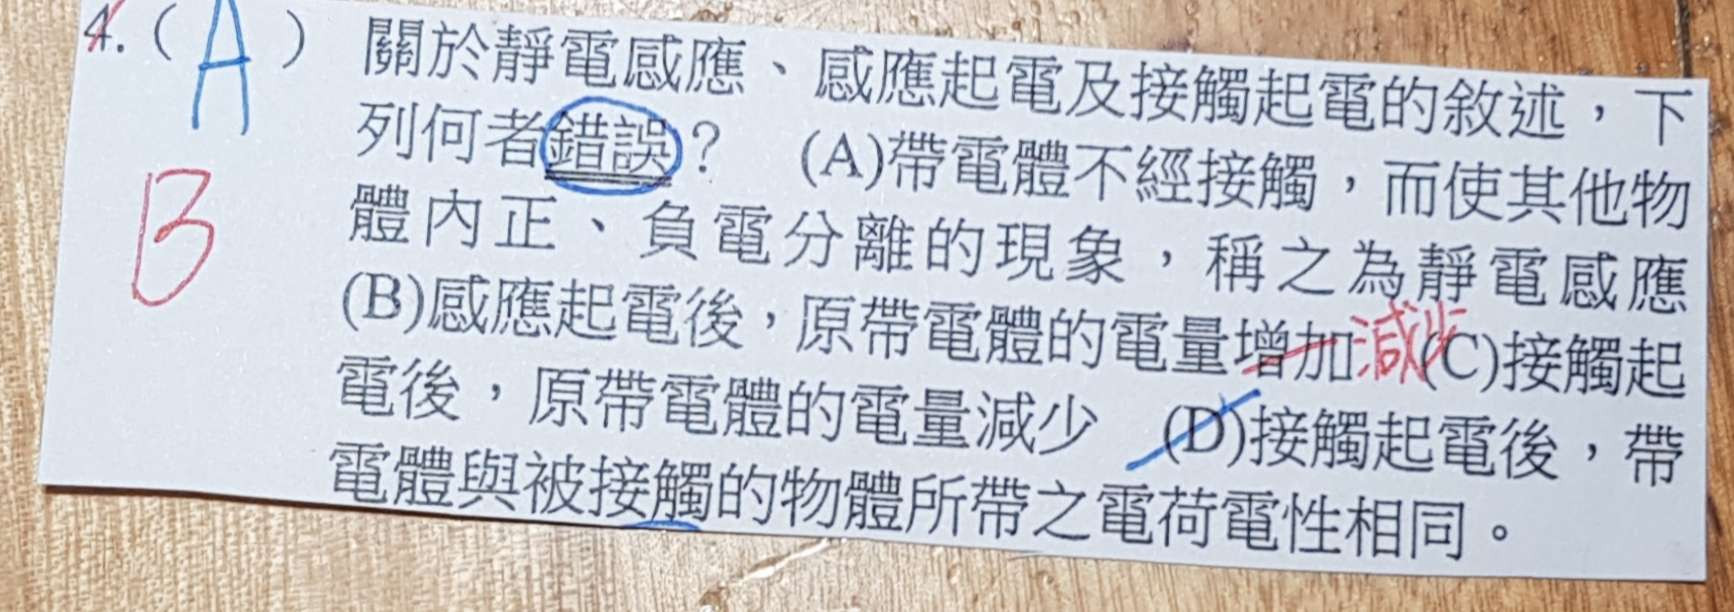 4.(A) 關於靜電感應、感應起電及接觸起電的敘述，下
列何者錯誤？ (A)帶電體不經接觸，而使其他物
B
體內正、負電分離的現象，稱之為靜電感應
(B)感應起電後，原帶電體的電量增加減少(C)接觸起
電後，原帶電體的電量減少 (D)接觸起電後，帶
電體與被接觸的物體所帶之電荷電性相同。